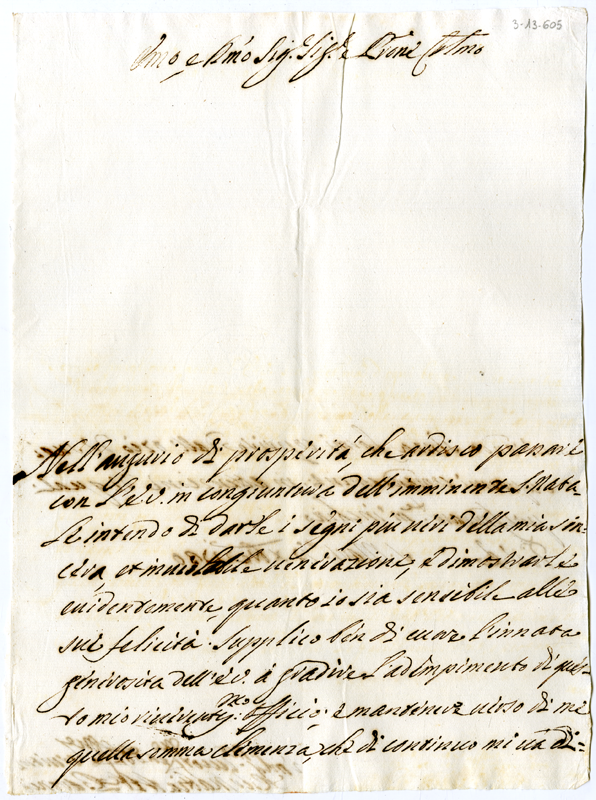 3-13-605
Ill:mo e R:mo Sig:r Sig:r e P̃rone Col:mo
Nell'augurio di prosperità, che ardisco passare
con l'E.V. in congiuntura dell'imminente S. Nata-
le intendo di darle i segni piu uiui della mia sin-
cera, et inuiolabile uenerazione, e dimostrarle
euidentemente, quanto io sia sensibile alle
sue felicità. Supplico ben di cuore l'innata
generosita dell'E.V. à gradire l'adempimento di ques-
to mio riuerente:mo officio, e mantenere uerso di me
quella somma clemenza, che di continuo mi uà di-